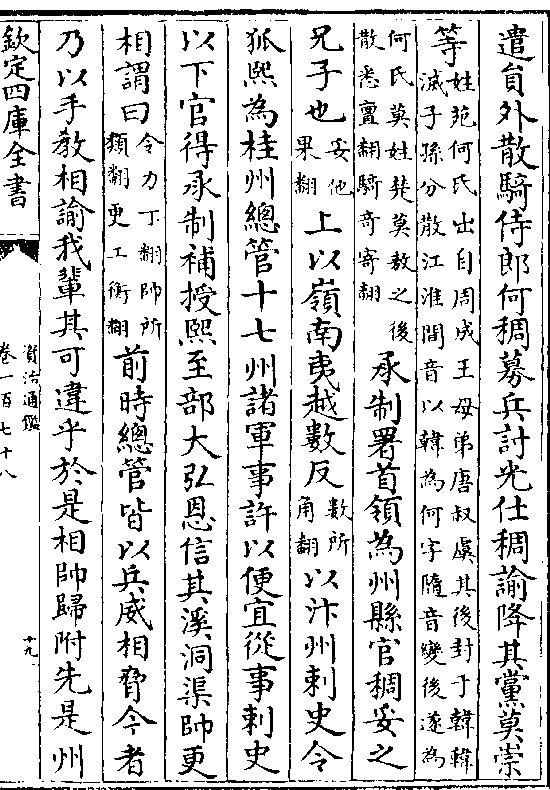 遣員外散騎侍郎何稠募兵討光仕稠諭降其黨莫崇
等姓苑何氏出自周成王母弟唐叔虞其後封于韓韓
滅子孫分散江淮間音以韓為何字隨音變後遂為
何氏莫姓楚莫敖之後
散悉亶翻騎奇寄翻承制署首領為州縣官稠妥之
兄子也妥他
果翻上以嶺南夷越數反數所
角翻以汴州刺史令
狐熙為桂州總管十七州諸軍事許以便宜從事刺史
以下官得承制補授熙至部大弘恩信其溪洞渠帥更
相謂曰令力丁翻帥所
類翻更工衡翻前時總管皆以兵威相脅今者
乃以手教相諭我輩其可違乎於是相帥歸附先是州
欽定四庫全書
資治通鑑
卷一百七十八
十九